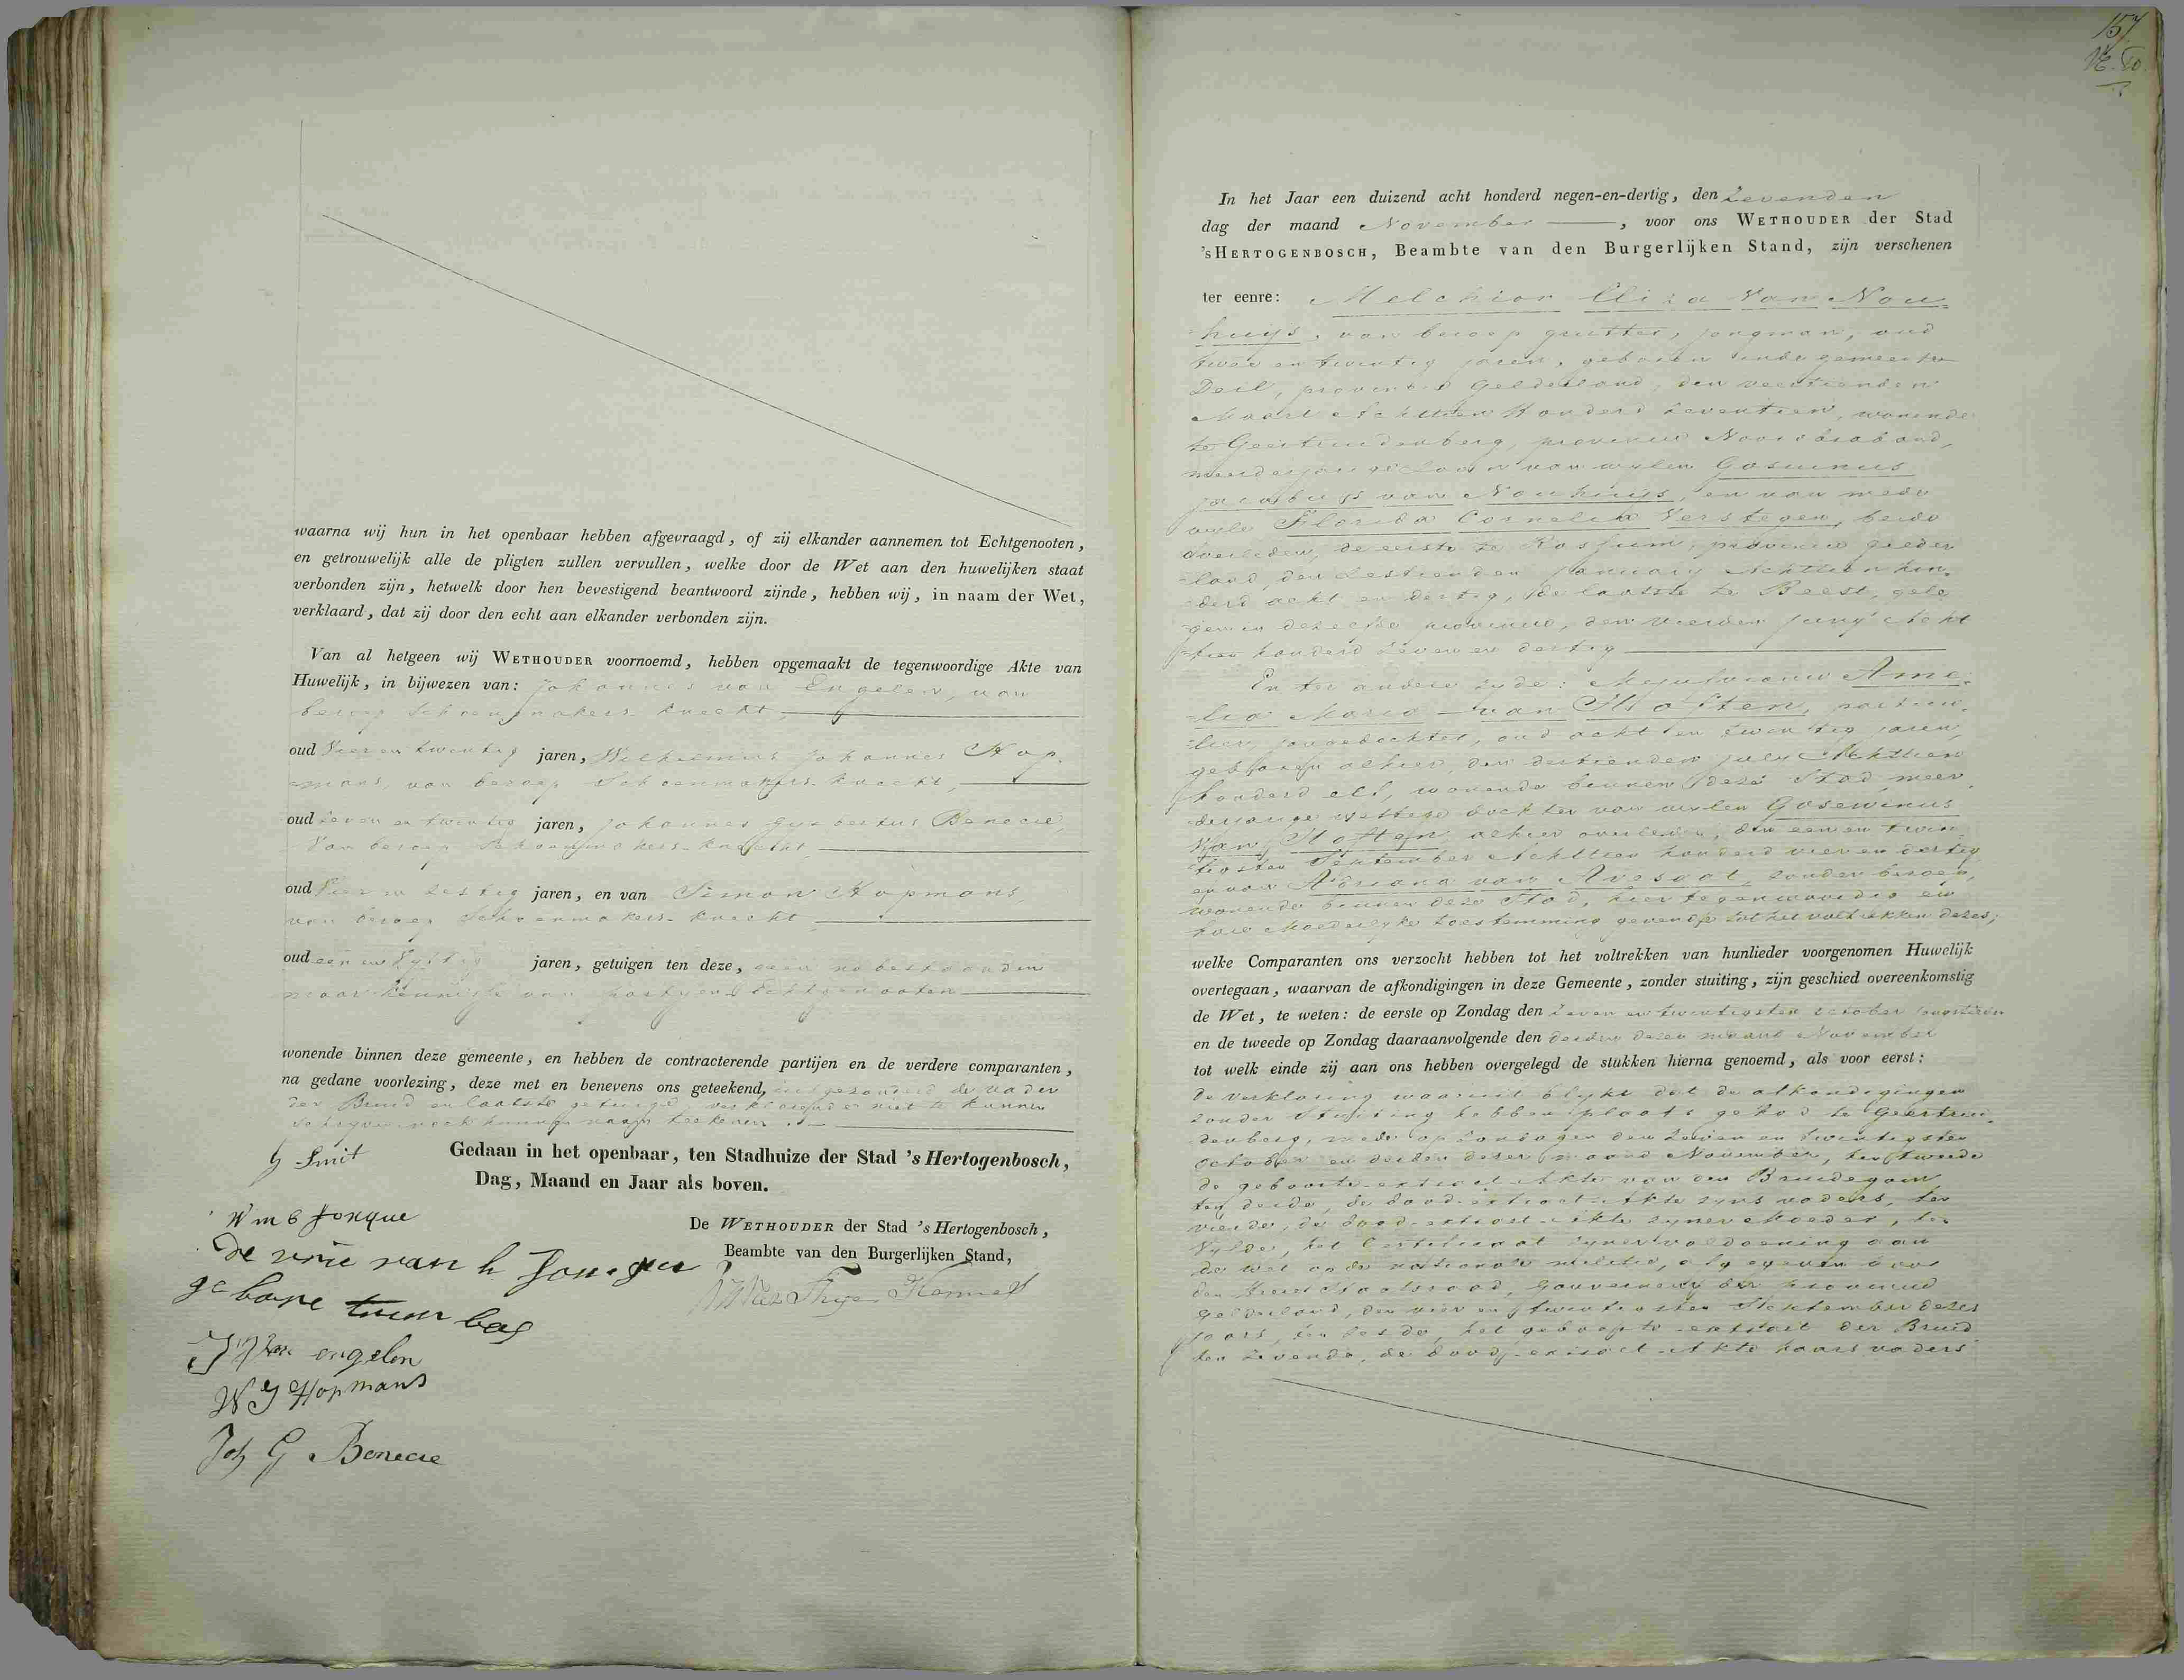 waarna wij hun in het openbaar hebben afgevraagd, of zij elkander aannemen tot Echtgenooten,
en getrouwelijk alle de pligten zullen vervullen, welke door de Wet aan den huwelijken staat
verbonden zijn, hetwelk door hen bevestigend beantwoord zijnde, hebben wij, in naam der Wet,
verklaard, dat zij door den echt aan elkander verbonden zijn.
Van al hetgeen wij WETHOUDER voornoemd, hebben opgemaakt de tegenwoordige Akte van
Huwelijk, in bijwezen van: Johannes van Engelen, van
beroep Schoenmakers-knecht,
oud vier en twentig jaren, Wilhelmus Johannes Hop-
mans, van beroep Schoenmakers-knecht,
oud zeven en twentig jaren, Johannes Gysbertus Benecie,
van beroep Schoenmakers-knecht,
oud vier en zestig jaren, en van Simon Hopmans
van beroep Schoenmakers-knecht
oud een en vyftig jaren, getuigen ten deze, geen nabestaanden
maar kennissen van partyen Echtgenooten
wonende binnen deze gemeente, en hebben de contracterende partijen en de verdere comparanten,
na gedane voorlezing, deze met en benevens ons geteekend, uitgezonderd de vader
der Bruid en laatste getuige, verklarende niet te kunnen
schryven noch hunnen naam teekenen.
Smit
Gedaan in het openbaar, ten Stadhuize der Stad 's Hertogenbosch,
Dag, Maand en Jaar als boven.
De WETHOUDER der Stad 's Hertogenbosch,
Beambte van den Burgerlijken Stand,
van engelen
W J Hopmans
Joh G Benecie
157
In het Jaar een duizend acht honderd negen-en-dertig, den zevenden
dag der maand November, voor ons WETHOUDER der Stad
'sHERTOGENBOSCH, Beambte van den Burgerlijken Stand, zijn verschenen
ter eenre: Melchior Eliza van Nou-
huijs, van beroep grutter, jongman, oud
twee en twentig jaren, geboren in de gemeente
Deil, provincie Gelderland, den veertienden
Maart Achttien Honderd zeventien, wonende
te Geertruidenberg, provincie Noordbraband,
meerderjarige Zoon van wylen Gosuinus
Jacobus van Nouhuijs, en van mede
wyle Florida Cornelia Verstegen, beide
overleden, de eerste te Rossum, provincie Gelder-
land, den sestienden January Achttien hon-
derd acht en dertig, de laatste te Beest, gele-
gen in dezelfde provincie, den vierden Juny Acht-
tien honderd zeven en dertig
En ter andere zyde: Mejufvrouw Ame-
lia Maria van Hoften, particu-
liere, jongedochter, oud acht en twentig jaren,
geboren alhier, den dertienden July Achttien
honderd elf, wonende binnen deze Stad, meer-
derjarige wettige dochter van wylen Gosewinus
van Hoften, alhier overleden, den een en twin-
tigsten September Achttien honderd vier en dertig
en van Adriana van Avesaat, zonder beroep,
wonende binnen deze Stad, hier tegenwoordig en
hare Moederlyke toestemming gevende tot het voltrekken dezes;
welke Comparanten ons verzocht hebben tot het voltrekken van hunlieder voorgenomen Huwelijk
overtegaan, waarvan de afkondigingen in deze Gemeente, zonder stuiting, zijn geschied overeenkomstig
de Wet, te weten: de eerste op Zondag den zeven en twentigsten october jongstleden
en de tweede op Zondag daaraanvolgende den derden dezer maand November
tot welk einde zij aan ons hebben overgelegd de stukken hierna genoemd, als voor eerst:
de verklaring waaruit blykt dat de afkondigingen
zonder Stuiting hebben plaats gehad te Geertrui-
denberg, mede op Zondagen den zeven en twentigsten
october en derden dezer maand November, ten tweede
de geboorte-extract-Akte van den Bruidegom
ten derde, de dood-extract-Akte zyns vaders, ten
vierde, de dood-extract-Akte zyner Moeder, ten
vyfde, het Certificaat zyner voldoening aan
de wet op de nationale militie, afgegeven door
den Heer Staatsraad, Gouverneur der provincie
Gelderland, den vier en twentigsten September dezes
jaars, ten zesde, het geboorte-extract der Bruid
ten zevende, de dood-extract-Akte haars vaders